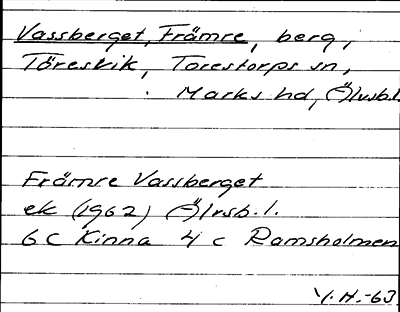 Vassberget, Främre, berg,
Töresvik, Torestorps sn,
Marks hd, Älvsb.l.
Främre Vassberget
ek (1962) Älvsb.l.
6 C Kinna 4 c Ramsholmen
V.H.-63